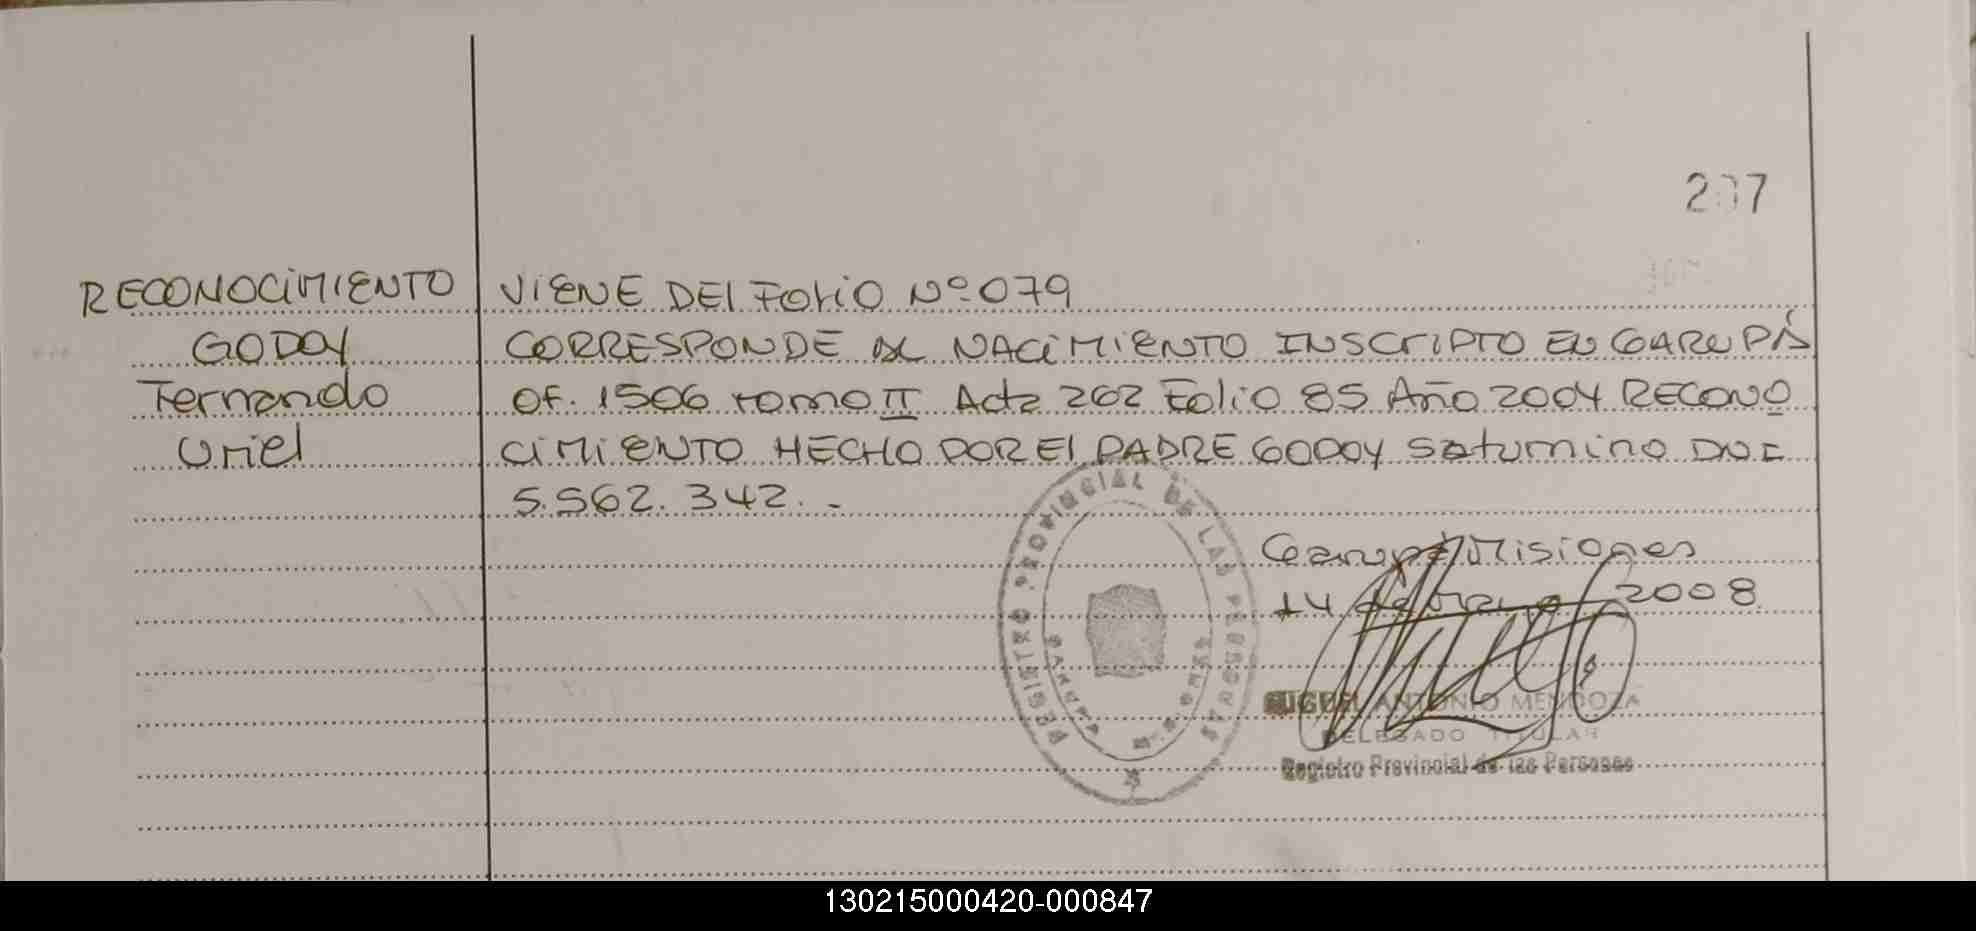 207
RECONOCIMIENTO
GODOY
Fernando
Uriel
VIENE DEL FOLIO Nº 079
CORRESPONDE AL NACIMIENTO INSCRIPTO EN GARUPÁ
OF. 1506 tomo II Acta 262 Folio 85 Año 2004 RECONO
CIMIENTO HECHO POR El PADRE GODOY Saturnino DNI
5.562.342.-
REGISTRO PROVINCIAL DE LAS PERSONAS
Garupá Misiones
14 2008
MIGUEL ANTONIO MENDOZA
DELEGADO TITULAR
Registro Provincial de las Personas
130215000420-000847